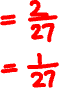 = 2/27
= 1/27